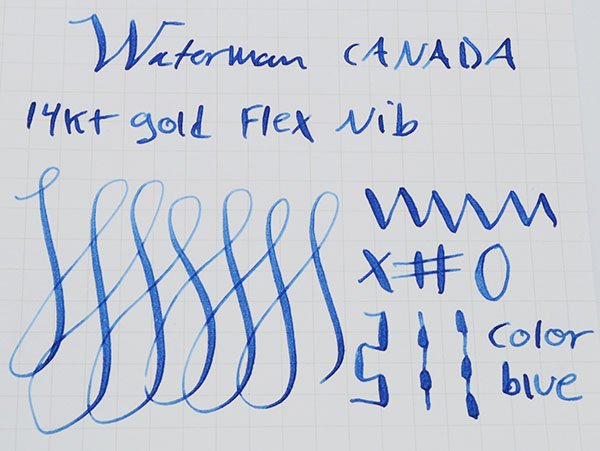 Waterman CANADA
14kt gold Flex Nib
X#0
color
blue